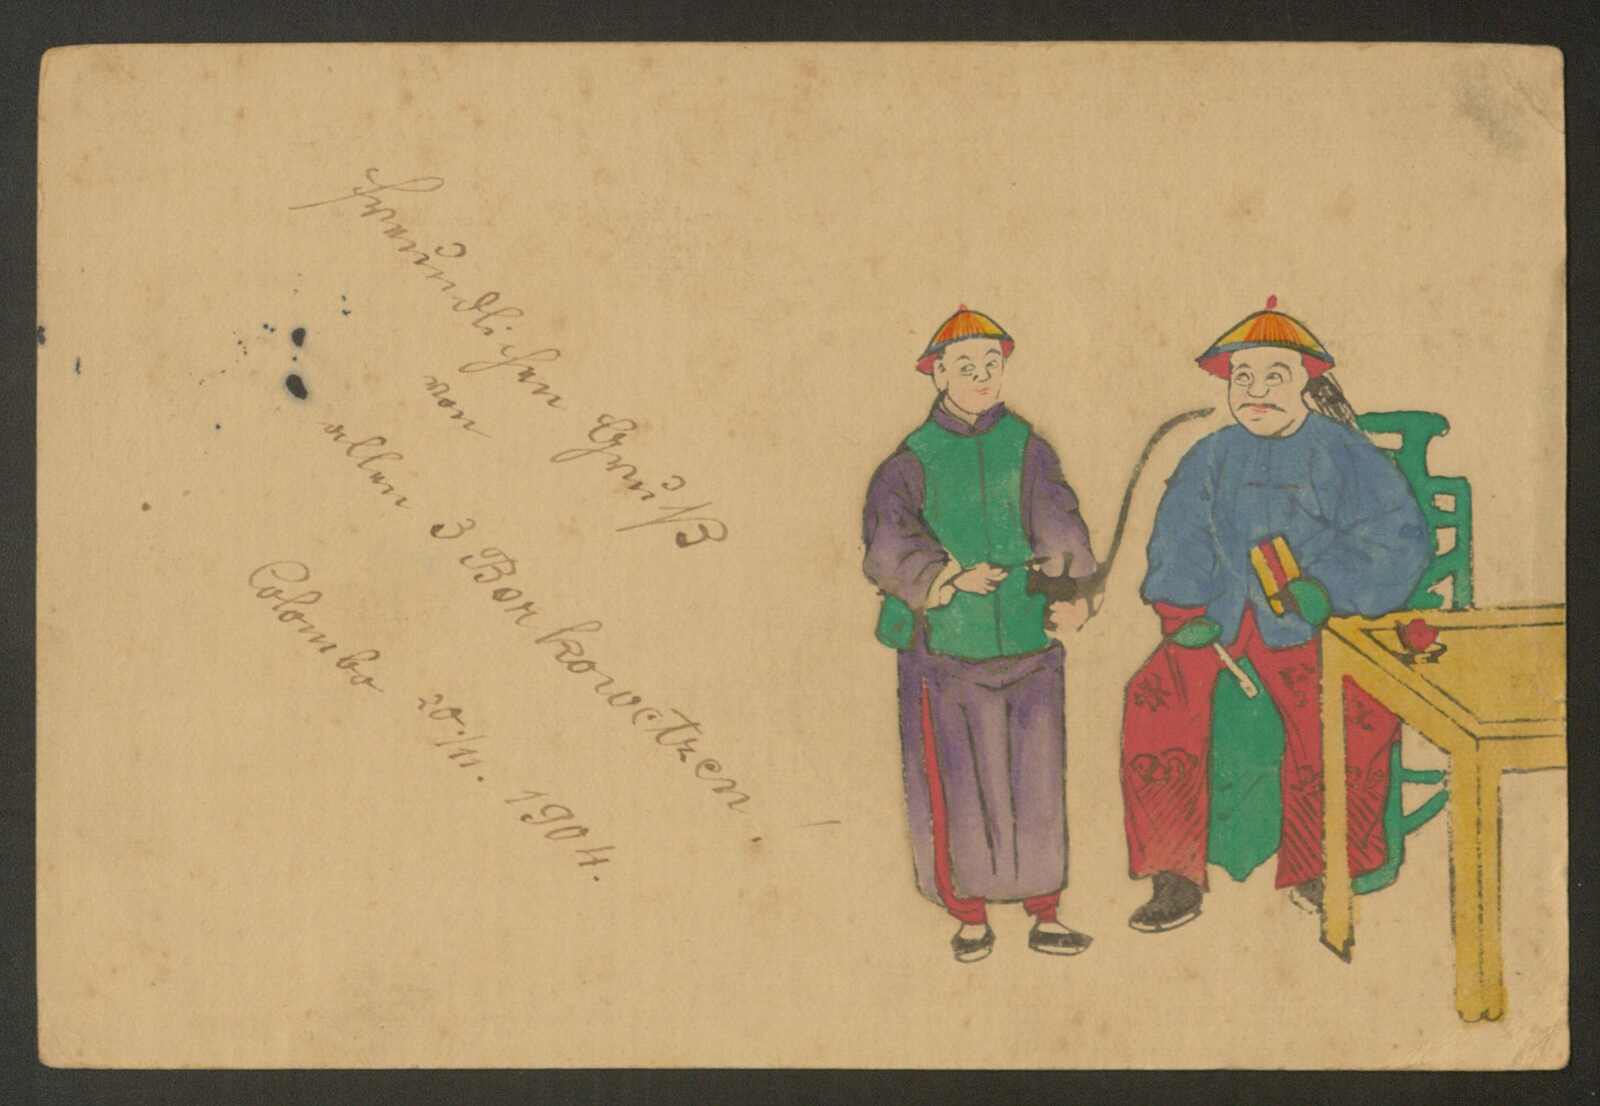 Freundlichen Gruß
von
allen 3 Borkowetzen.!
Colombo 20./11. 1904.